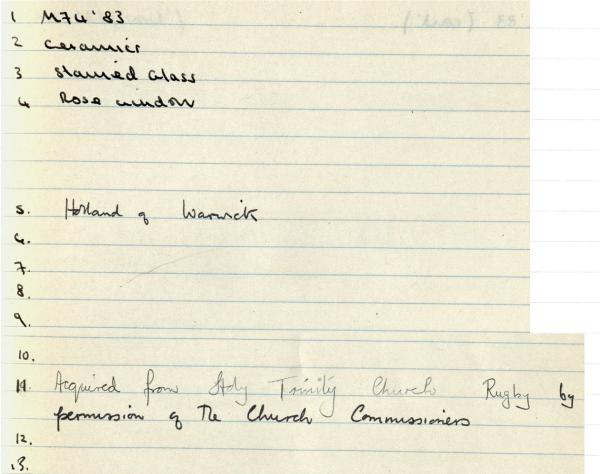 1 M74 '83
2 Ceramics
3 Stained Glass
4 Rose window
5. Holland of Warwick
6.
7.
8.
9.
10.
11. Acquired from Holy Trinity Church Rugby by
permission of The Church Commissioners
12.
13.